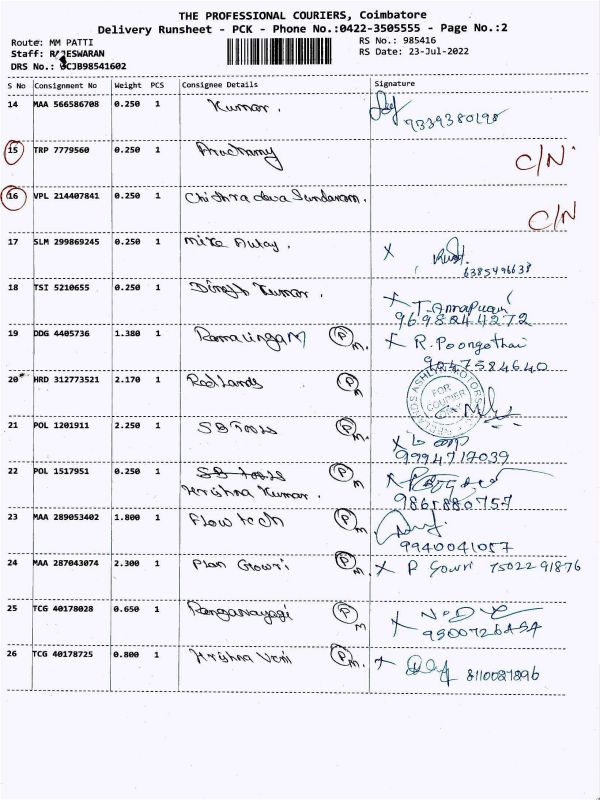 THE PROFESSIONAL COURIERS, Coimbatore
Delivery Runsheet - PCK - Phone No.:0422-3505555 - Page No.:2
Route: MM PATTI
RS No.: 985416
Staff: RAJESWARAN
RS Date: 23-Jul-2022
DRS No.: CJB98541602
S No Consignment No Weight PCS Consignee Details Signature
14 MAA 566586708 0.250 1 Kumar.
9339380190
15 TRP 7779560 0.250 1 C/N
16 VPL 214407841 0.250 1 Chithra deva Sundaram.
C/N
17 SLM 299869245 0.250 1 X
6385496638
18 TSI 5210655 0.250 1 Dinesh Kumar. X T. Annapurani
9698244272
19 DDG 4405736 1.380 1 Ramalingam PM. X R. Poongothai
9047584640
20 HRD 312773521 2.170 1 Redlands PM
FOR COURIER
21 POL 1201911 2.250 1 SB Tools PM. X
9994717039
22 POL 1517951 0.250 1 SB Tools PM
Krishna Kumar. 9865880757
23 MAA 289053402 1.800 1 Flow tech PM
9940041057
24 MAA 287043074 2.300 1 Plan Gowri PM. X P Gowri 7502291876
25 TCG 40178028 0.650 1 Ranganayagi PM X
26 TCG 40178725 0.800 1 Krishna Veni PM. X 8110087896